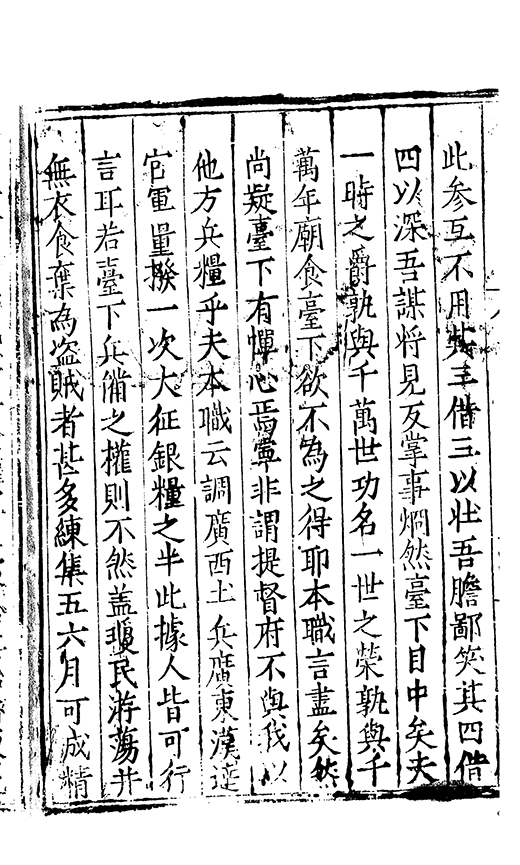 此参互不用其三借三以壮吾膽鄙笑其四借
四以深吾謀将見反掌事烱然臺下目中矣夫
一時之爵孰與千萬世功名一世之榮孰與千
萬年廟食臺下欲不為之得耶本職言盡矣然
尚疑臺下有憚心焉寧非謂提督府不與我以
他方兵糧乎夫本職云調廣西土兵廣東漢達
官軍量撥一次大征銀糧之半此據人皆可行
言耳若臺下兵備之權則不然盖瓊民游蕩并
無衣食棄為盗賊者甚多練集五六月可成精